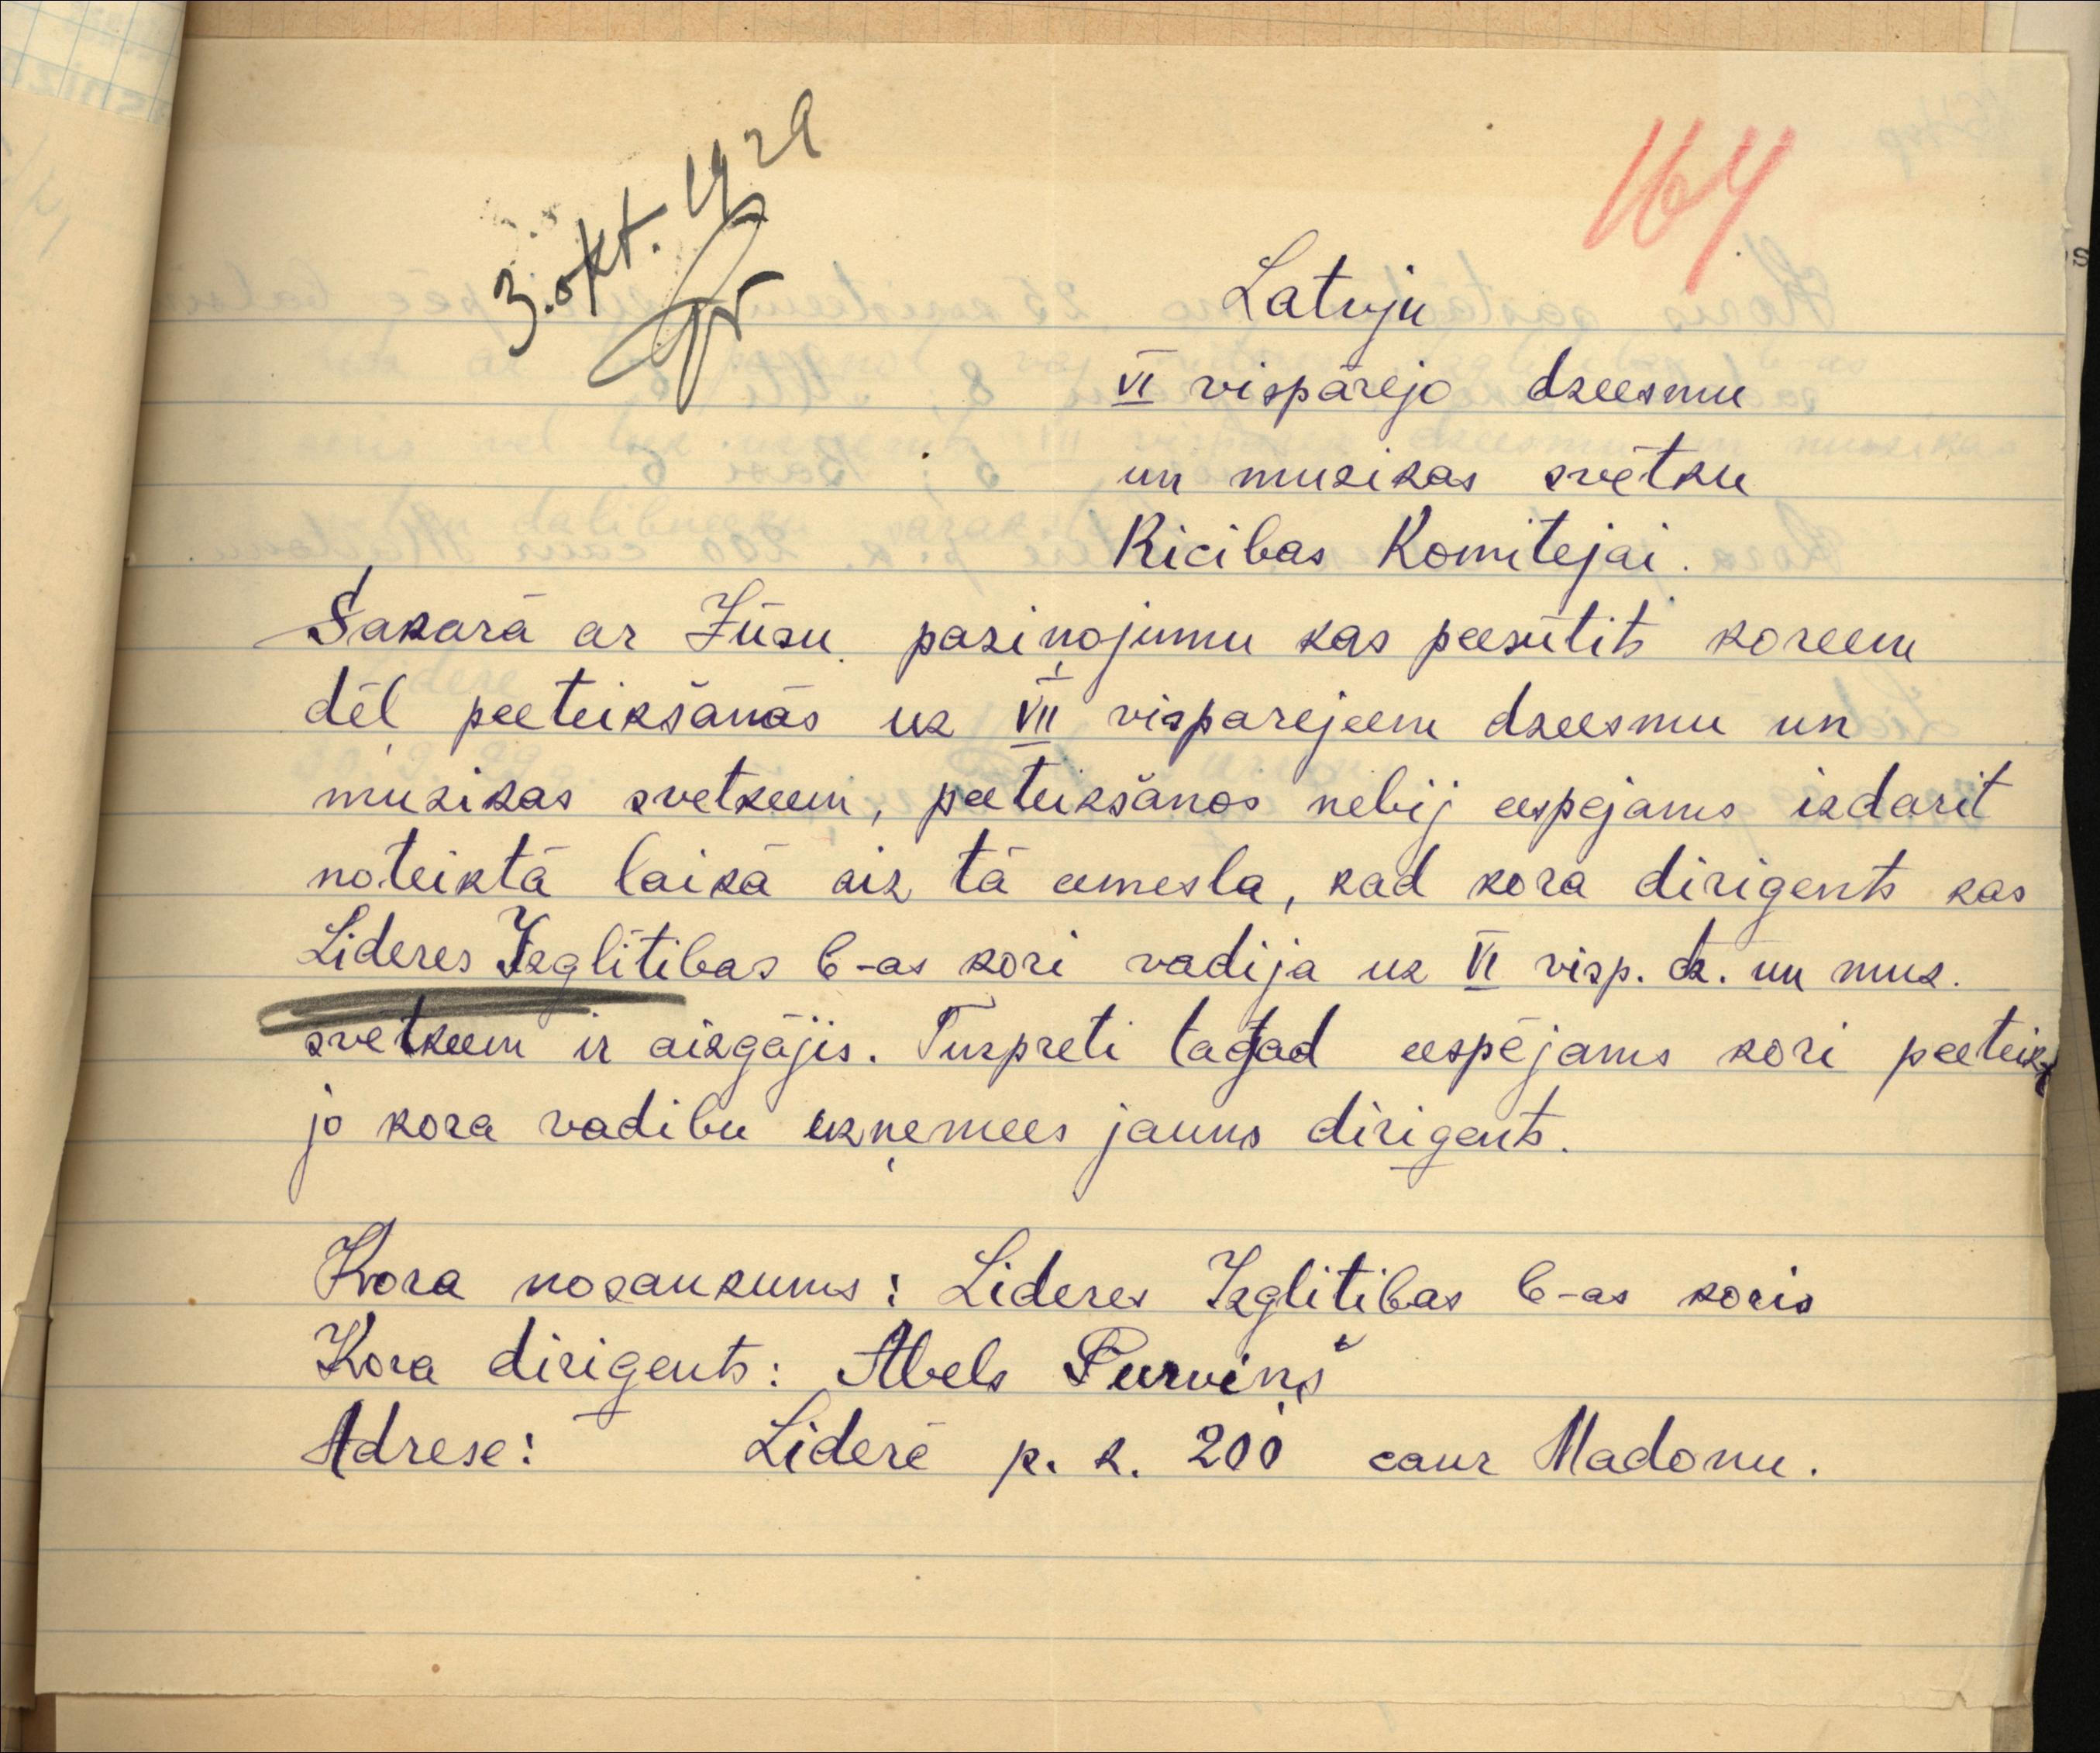 3. okt. 1929
164
Latvju
VI vispārejo dzeesmu
un muzikas svētku
Ricibas Komitejai.
Sakarā ar Jūsu paziņojumu kas peesūtits koreem
dēļ peeteikšanās uz VII visparejeem dzeesmu un
muzikas svetkeem, peeteikšanos nebij eespejams izdarit
noteiktā laikā aiz tā eemesla, kad kora diriģents kas
Lideres Izglītibas b-as kori vadija uz VI visp. dz. un muz.
svetkeem ir aizgājis. Turpreti tagad eespējams kori peeteikt
jo kora vadibu uzņemees jauns diriģents.
Kora nosaukums: Lideres Izglitibas b-as koris
Kora diriģents: Abels Purviņš
Adrese: Liderē p. k. 200 caur Madonu.